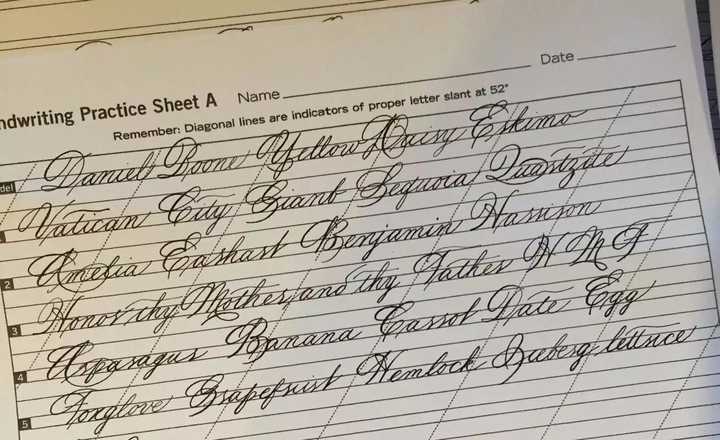 ndwriting Practice Sheet A Name Date
Remember: Diagonal lines are indicators of proper letter slant at 52°
del Daniel Boone Yellow Daisy Eskimo
Vatican City Giant Sequoia Quartzite
2 Amelia Earhart Benjamin Harrison
3 Honor thy Mother and thy Father H M F
4 Asparagus Banana Carrot Date Egg
5 Foxglove Grapefruit Hemlock Iceberg lettuce